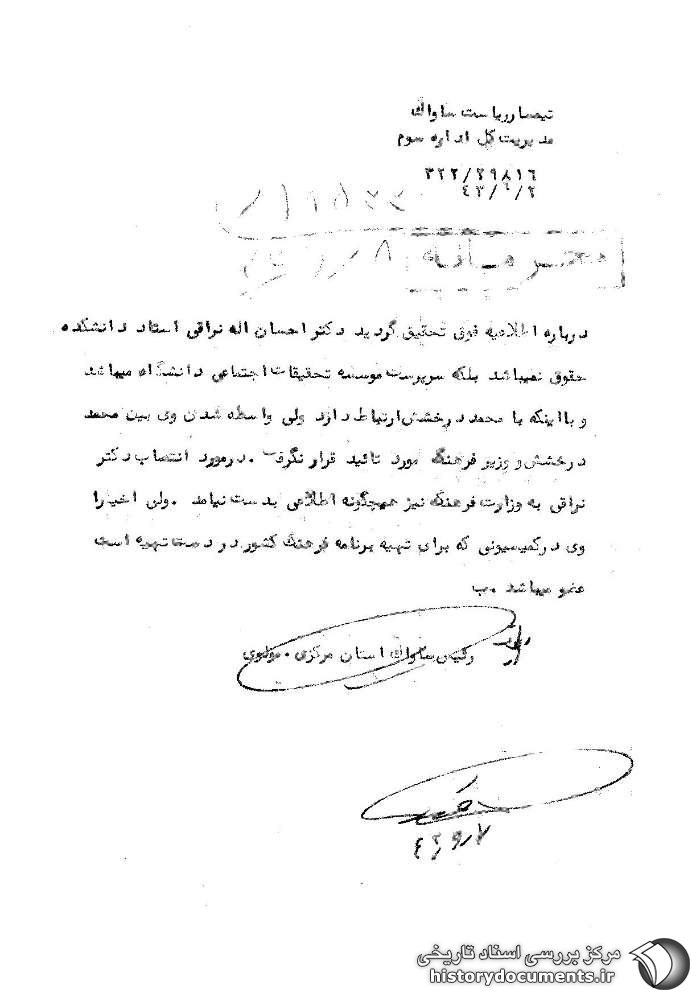 تیمسار ریاست ساواک
مدیریت کل اداره سوم
۳۲۲/۲۹۸۱٦
٤۳/٦/۲
محرمانه
درباره اطلاعیه فوق تحقیق گردید دکتر احسان اله نراقی استاد دانشکده
حقوق نمیباشد بلکه سرپرست موسسه تحقیقات اجتماعی دانشگاه میباشد
و با اینکه با محمد درخشش ارتباط دارد ولی واسطه شدن وی بین محمد
درخشش و وزیر فرهنگ مورد تائید قرار نگرفت . در مورد انتصاب دکتر
نراقی به وزارت فرهنگ نیز هیچگونه اطلاعی بدست نیامد . ولی اخیارا
وی در کمیسیونی که برای تهیه برنامه فرهنگ کشور در دست تهیه است
عضو میباشد . ب
رئیس ساواک استان مرکزی . مولوی
مرکز بررسی اسناد تاریخی
historydocuments.ir